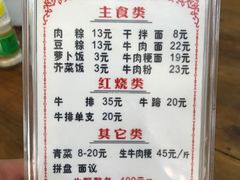 主食类
肉 粽 13元 干拌面 8元
豆 粽 13元 牛肉面 22元
萝卜饭 3元 牛肉粳面 19元
芥菜饭 3元 牛肉粉 23元
红烧类
牛 排 35元 牛 蹄 20元
牛排单支 20元
其它类
青菜 8-20元 生牛肉粳 45元/斤
拼盘 面议